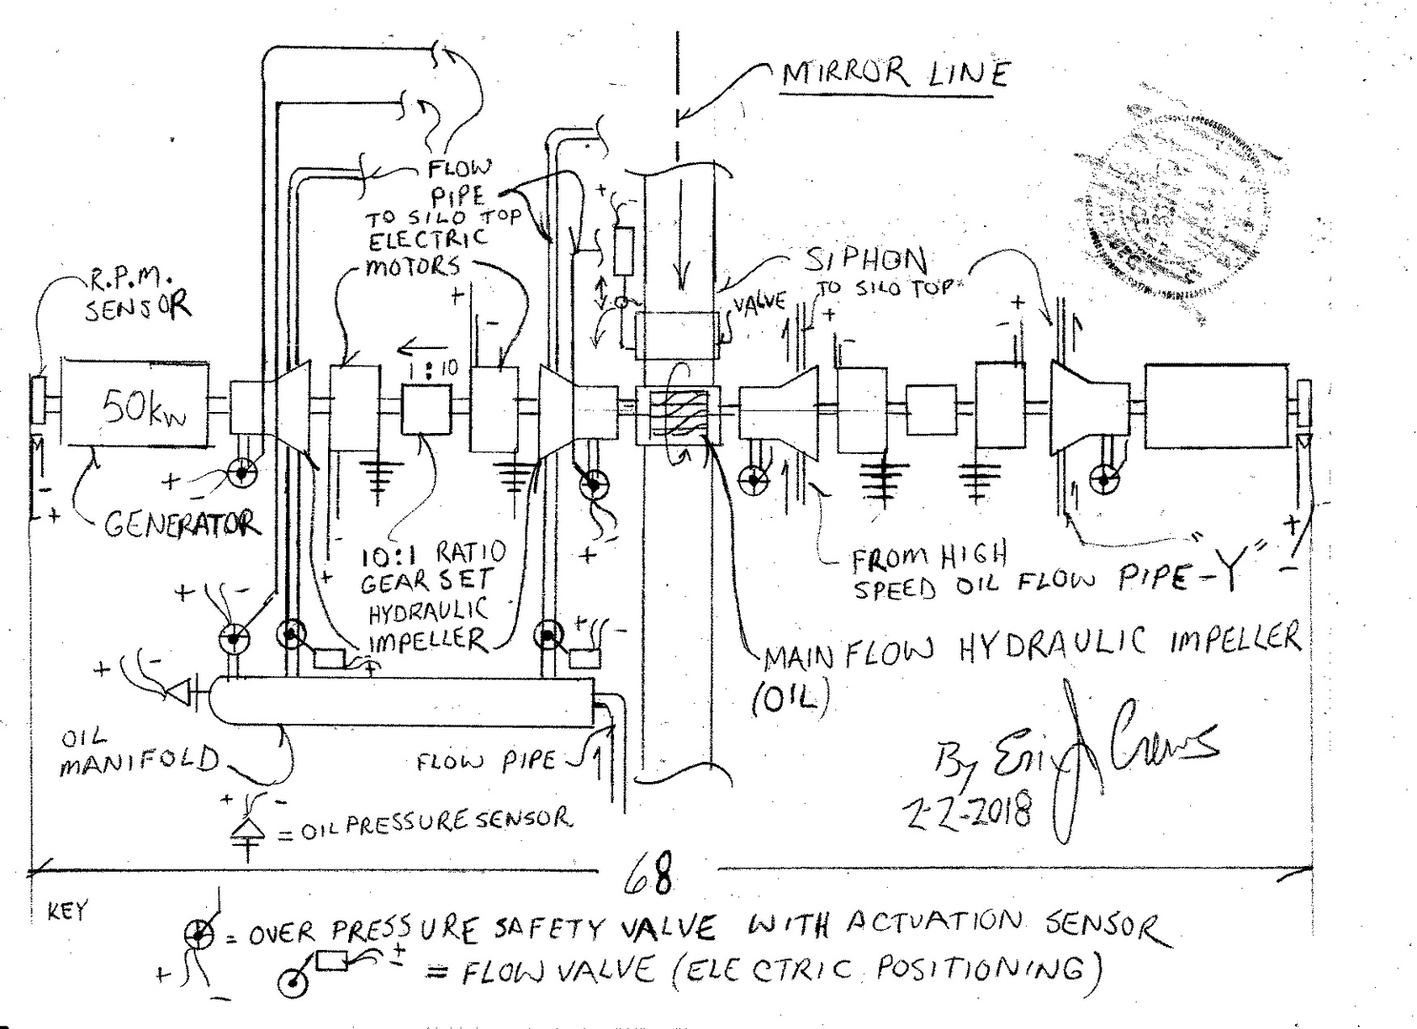 MIRROR LINE
FLOW
PIPE
TO SILO TOP
ELECTRIC
MOTORS
+
-
R.P.M.
SENSOR
SIPHON
TO SILO TOP
VALVE
+
-
+
-
+
-
1:10
50KW
+
-
-
+
GENERATOR
10:1 RATIO
GEAR SET
HYDRAULIC
IMPELLER
-
+
+
-
+
-
FROM HIGH
SPEED OIL FLOW PIPE-"Y"
+
-
+
-
+
-
MAIN FLOW HYDRAULIC IMPELLER
(OIL)
+
-
OIL
MANIFOLD
FLOW PIPE
By Eric J Crews
2-2-2018
+
-
= OIL PRESSURE SENSOR
68
KEY
= OVER PRESSURE SAFETY VALVE WITH ACTUATION SENSOR
+
-
+
-
= FLOW VALVE (ELECTRIC POSITIONING)